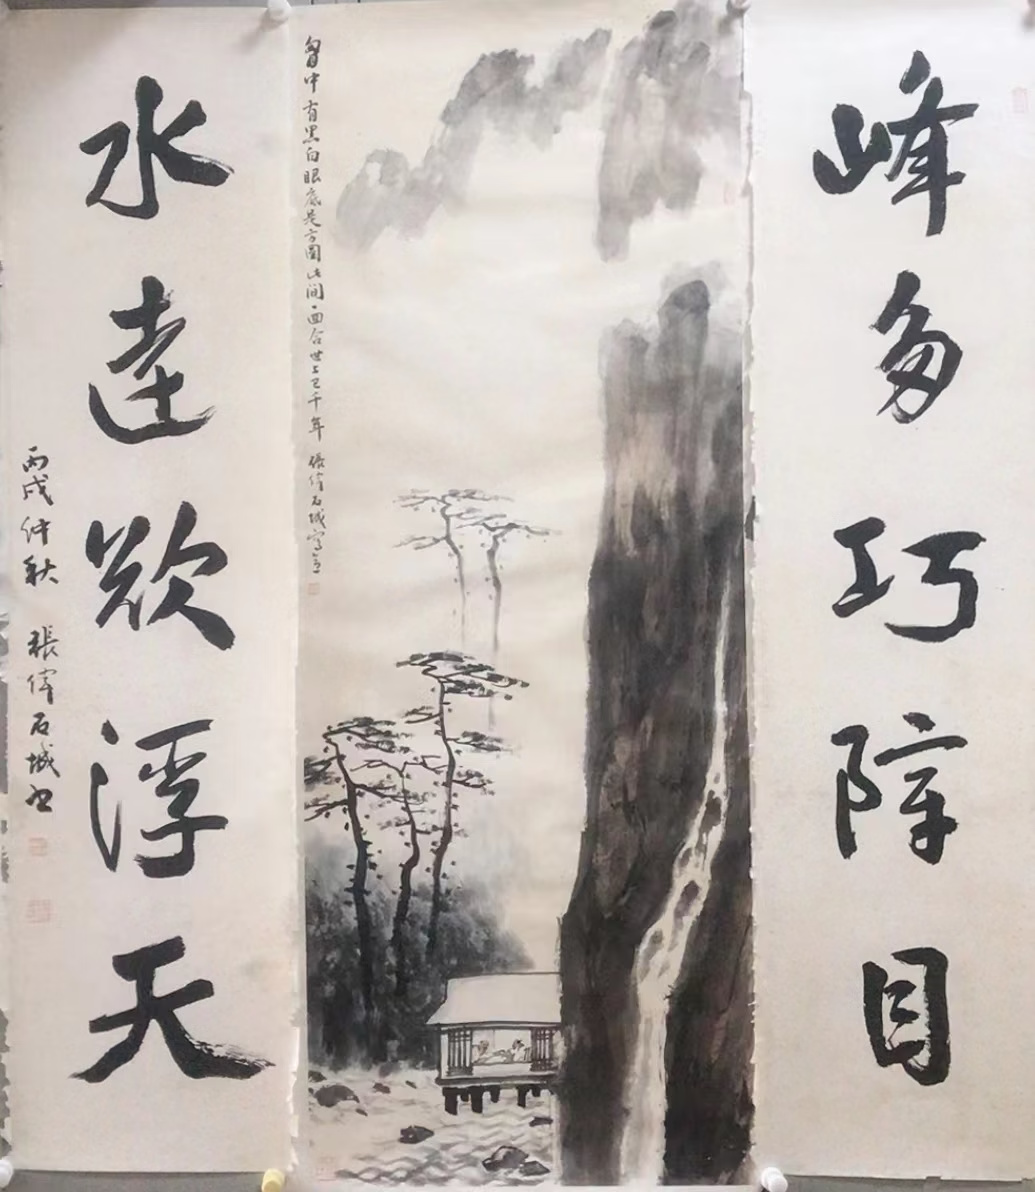 峰多巧障目
胷中有黑白眼底是方圓此间一囬合世上已千年 張偉石城寫意
水遠欲浮天
丙戌仲秋 張偉石城書